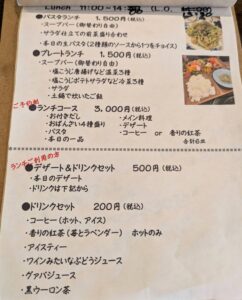 Lunch 11:00~14:30 (L.O.
●パスタランチ 1,500円(税込)
・スープバー(御替わり自由)
・サラダ仕立ての前菜盛り合わせ
・本日の生パスタ(2種類のソースから1つをチョイス)
●プレートランチ 1,500円(税込)
・スープバー(御替わり自由)
・塩こうじ唐揚げなど温菜3種
・塩こうじポテトサラダなど冷菜3種
・サラダ
・土鍋で炊いたご飯
ご予約制
●ランチコース 3,000円(税込)
・お付きだし ・メイン料理
・おばんざい4種盛り ・デザート
・パスタ ・コーヒー or 香りの紅茶
・本日の一品 合計8皿
ランチご利用の方
●デザート&ドリンクセット 500円(税込)
・本日のデザート
・ドリンクは下記から
●ドリンクセット 200円(税込)
・コーヒー(ホット、アイス)
・香りの紅茶(苺とラベンダー) ホットのみ
・アイスティー
・ワインみたいなぶどうジュース
・グァバジュース
・黒ウーロン茶